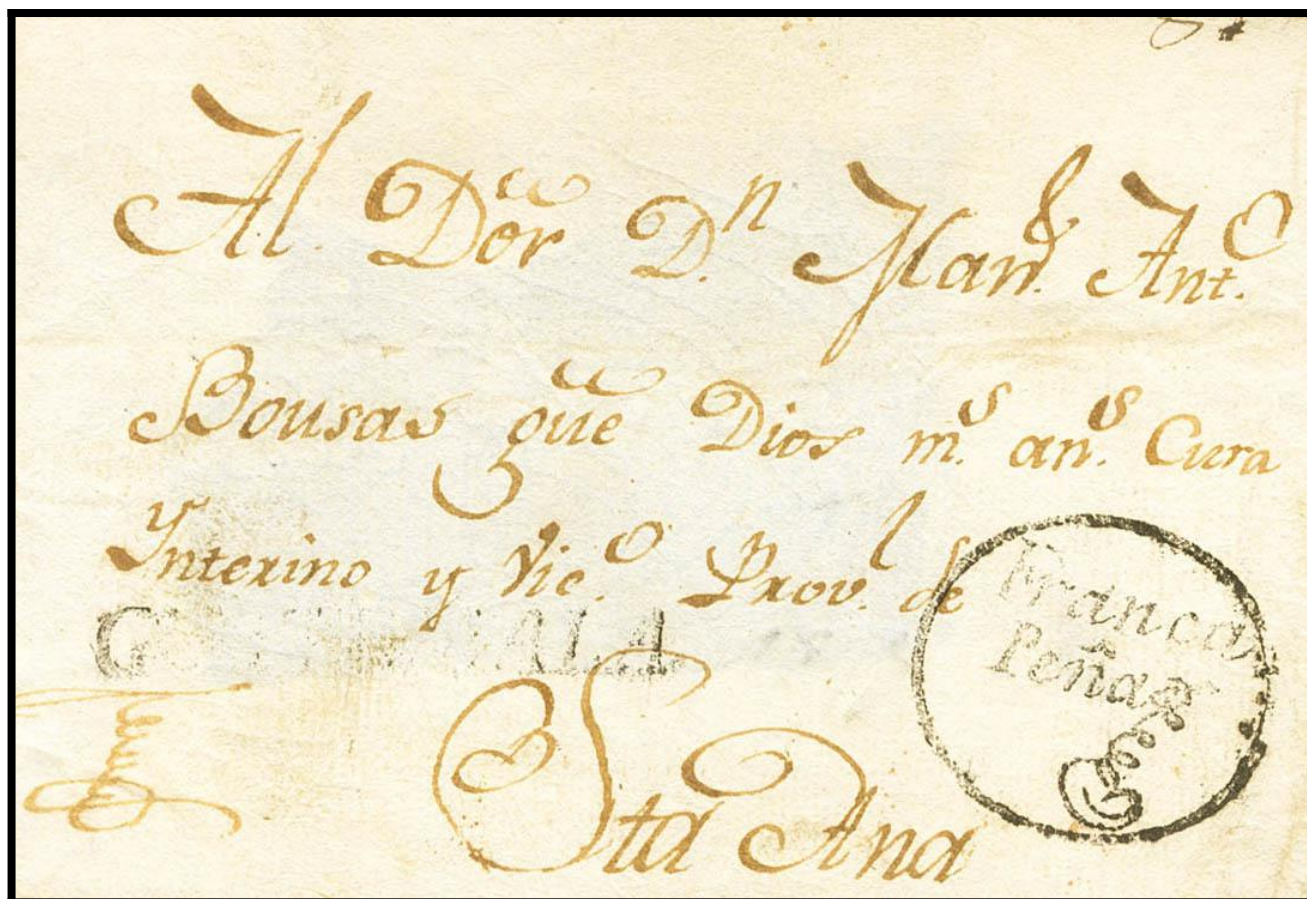 Al Dor. Dn. Manl. Anto.
Bousas gue Dios ms. ans. Cura
Ynterino y Vico. Provl. de
GUATEMALA
Sta Ana
Franca
Peña